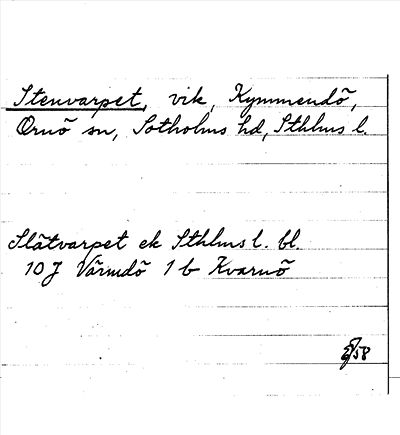 Stenvarpet, vik, Kymmendö,
Ornö sn, Sotholms hd, Sthlms l.
Slätvarpet ek Sthlms l. bl.
10 J Värmdö 1 b Kvarnö
58